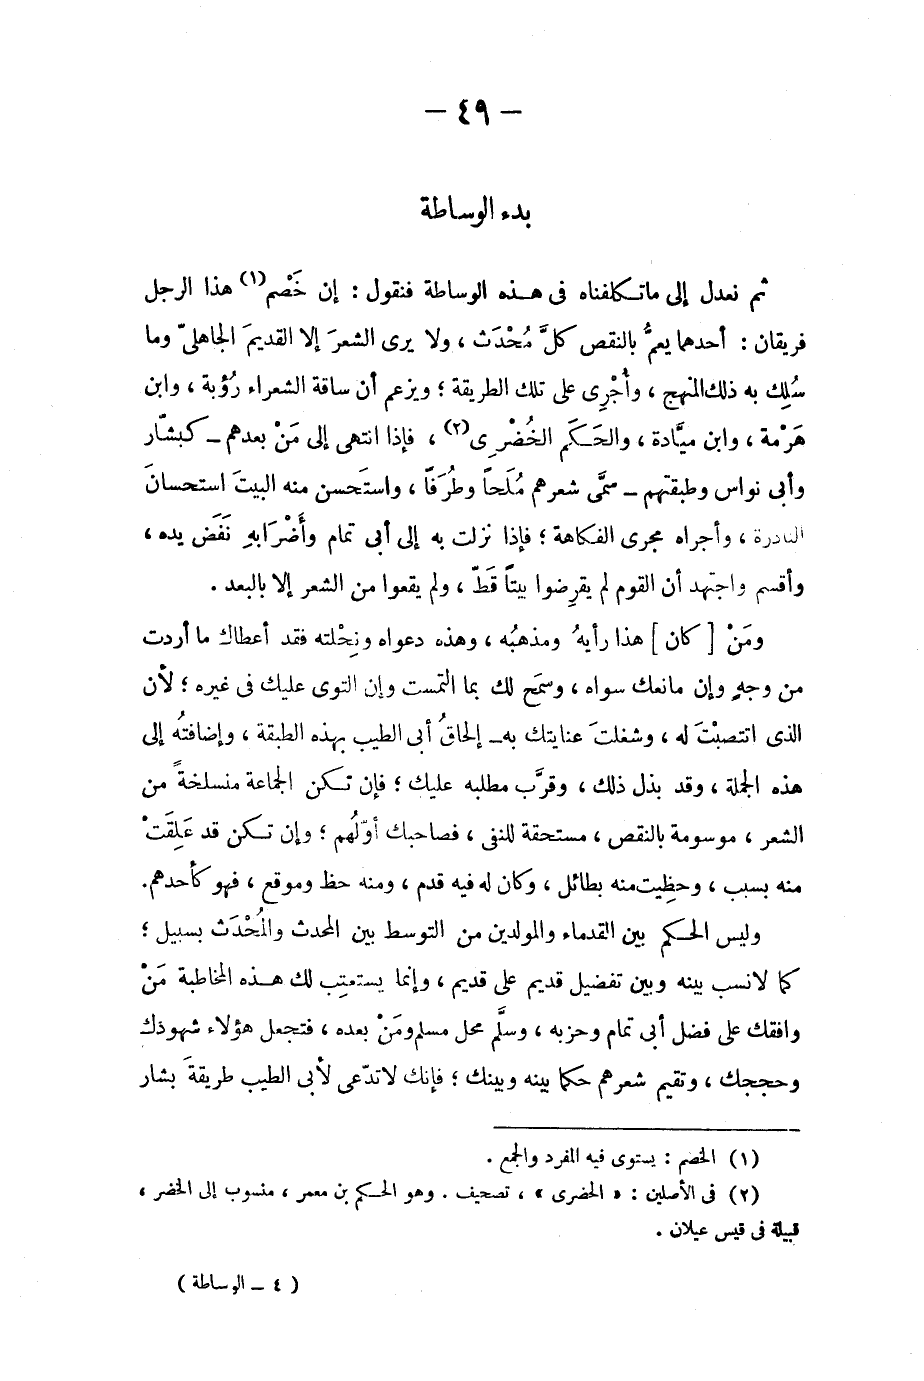 — ٤٩ —
بدء الوساطة
ثم نعدل إلى ماتكلفناه فى هذه الوساطة فنقول : إن خَصْم(١) هذا الرجل
فريقان : أحدهما يعمُّ بالنقص كلَّ مُحْدَث ، ولا يرى الشعرَ إلا القديمَ الجاهلىّ وما
سُلِك به ذلك المنهج ، وأُجْرِى على تلك الطريقة ؛ ويزعم أن ساقة الشعراء رُؤبة ، وابن
هَرْمة ، وابن ميَّادة ، والحَكَم الخُضْرِى(٢) ، فإذا انتهى إلى مَنْ بعدهم ـ كبشّار
وأبى نواس وطبقتهم ـ سمَّى شعرهم مُلَحاً وطُرَفاً ، واستَحسن منه البيتَ استحسانَ
النادرة ، وأجراه مجرى الفكاهة ؛ فإذا نزلت به إلى أبى تمام وأَضْرَابِهِ نَفَض يده ،
وأقسم واجتهد أن القوم لم يقرِضوا بيتاً قَطّ ، ولم يقعوا من الشعر إلا بالبعد .
ومَنْ [ كان ] هذا رأيهُ ومذهبُه ، وهذه دعواه ونِحْلته فقد أعطاك ما أردت
من وجهٍ وإن مانعك سواه ، وسمَح لك بما التمست وإن التوى عليك فى غيره ؛ لأن
الذى انتصبْتَ له ، وشغلتَ عنايتك به ـ إلحاقُ أبى الطيب بهذه الطبقة ، وإضافتهُ إلى
هذه الجملة ، وقد بذل ذلك ، وقرَّب مطلبه عليك ؛ فإن تكن الجماعة منسلخةً من
الشعر ، موسومة بالنقص ، مستحقة للنفى ، فصاحبك أوّلهُم ؛ وإن تكن قد عَلِقَتْ
منه بسبب ، وحظِيت منه بطائل ، وكان له فيه قدم ، ومنه حظ وموقع ، فهو كأحدهم.
وليس الحكم بين القدماء والمولدين من التوسط بين المحدث والمُحْدَث بسبيل ؛
كما لانسب بينه وبين تفضيل قديم على قديم ، وإنما يستعتِب لك هذه المخاطبة مَنْ
وافقك على فضل أبى تمام وحزبه ، وسلَّم محل مسلم ومَنْ بعده ، فتجعل هؤلاء شهودك
وحججك ، وتقيم شعرهم حكما بينه وبينك ؛ فإنك لاتدّعى لأبى الطيب طريقةَ بشار
(١) الخصم : يستوى فيه المفرد والجمع .
(٢) فى الأصلين : « الحضرى » ، تصحيف . وهو الحكم بن معمر ، منسوب إلى الخضر ،
قبيلة فى قيس عيلان .
( ٤ ـ الوساطة )